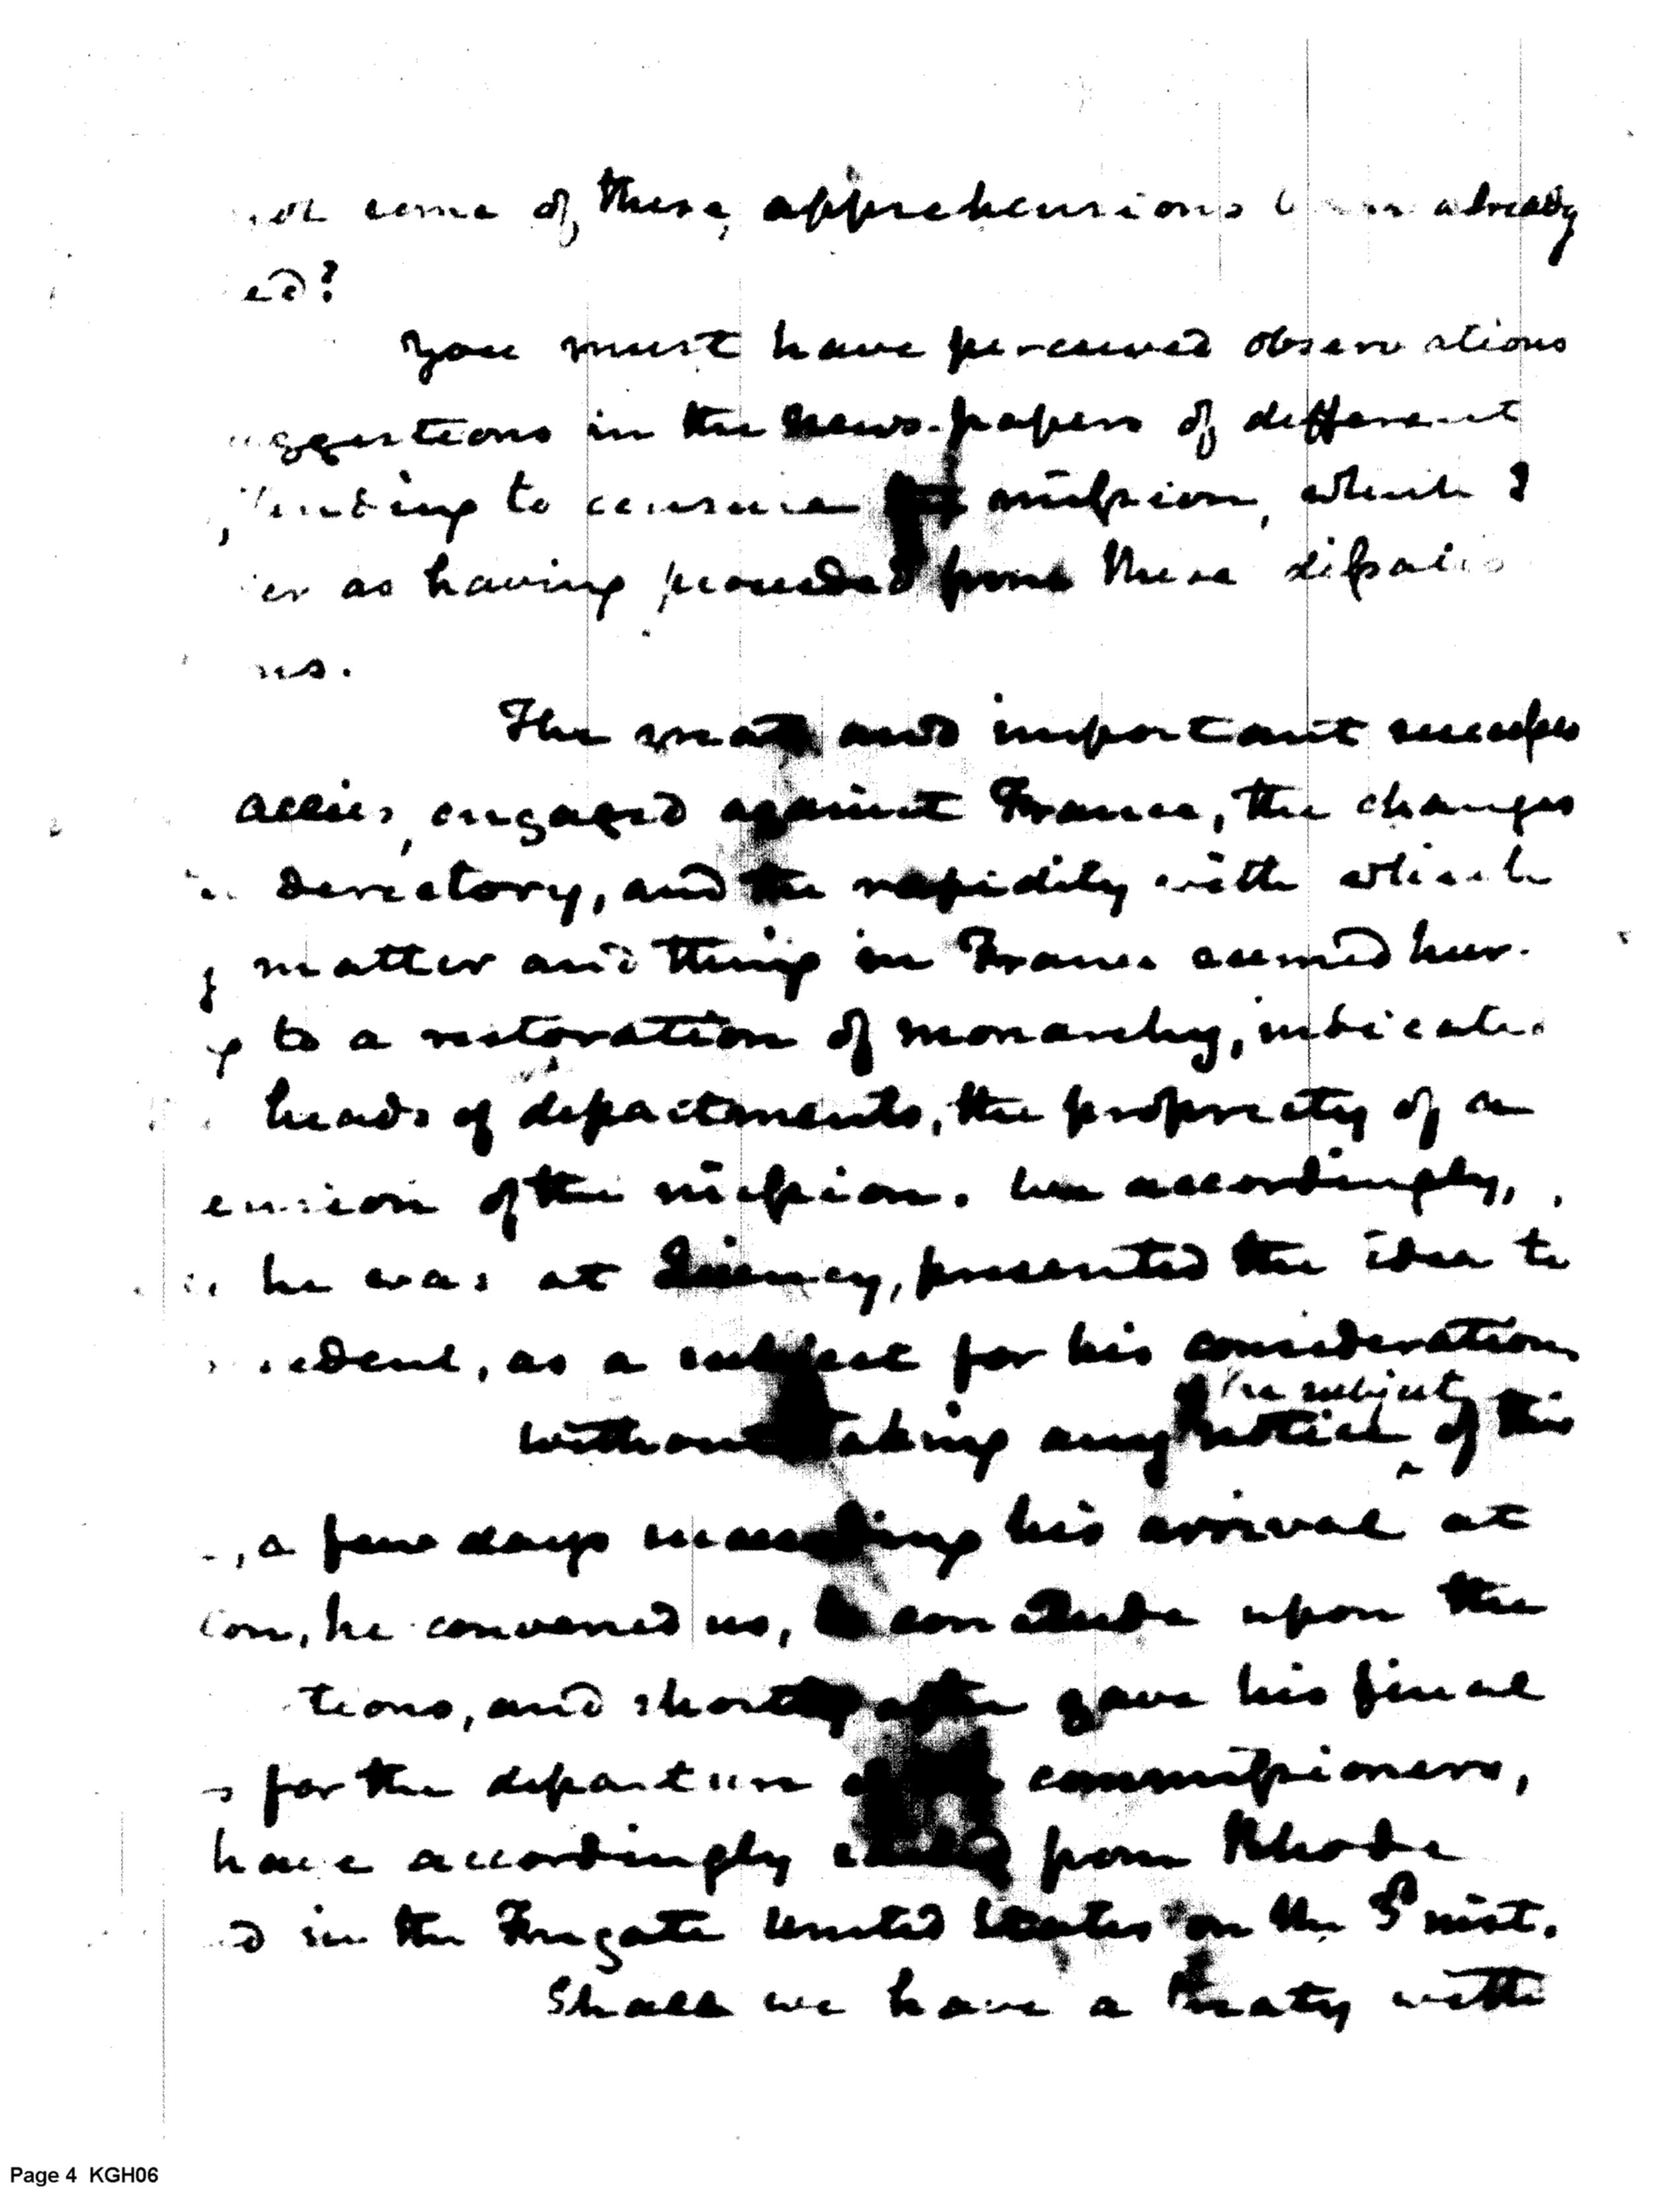 not some of these, apprehensions been already
ed?
You must have perceived observations
uggestions in the news-papers of different
tending to censure mission, which I
er as having proceeded from these
ns.
The great and important successes
allies, engaged against France, the changes
directory, and the rapidity with which
y matter and thing in France seemed hur-
g to a restoration of monarchy, indicated
heads of departments, the propriety of a
ension of the mission. We accordingly,
he was at Quincy, presented the idea to
sident, as a subject for his consideration
the subject
without taking any notice of this
, a few days succeeding his arrival at
ton, he convened us, to conclude upon the
tions, and shortly after gave his final
s for the departure of the commissioners,
have accordingly sailed from Rhode
d in the Frigate United States on the 3d inst.
Shall we have a treaty with
Page 4 KGH06